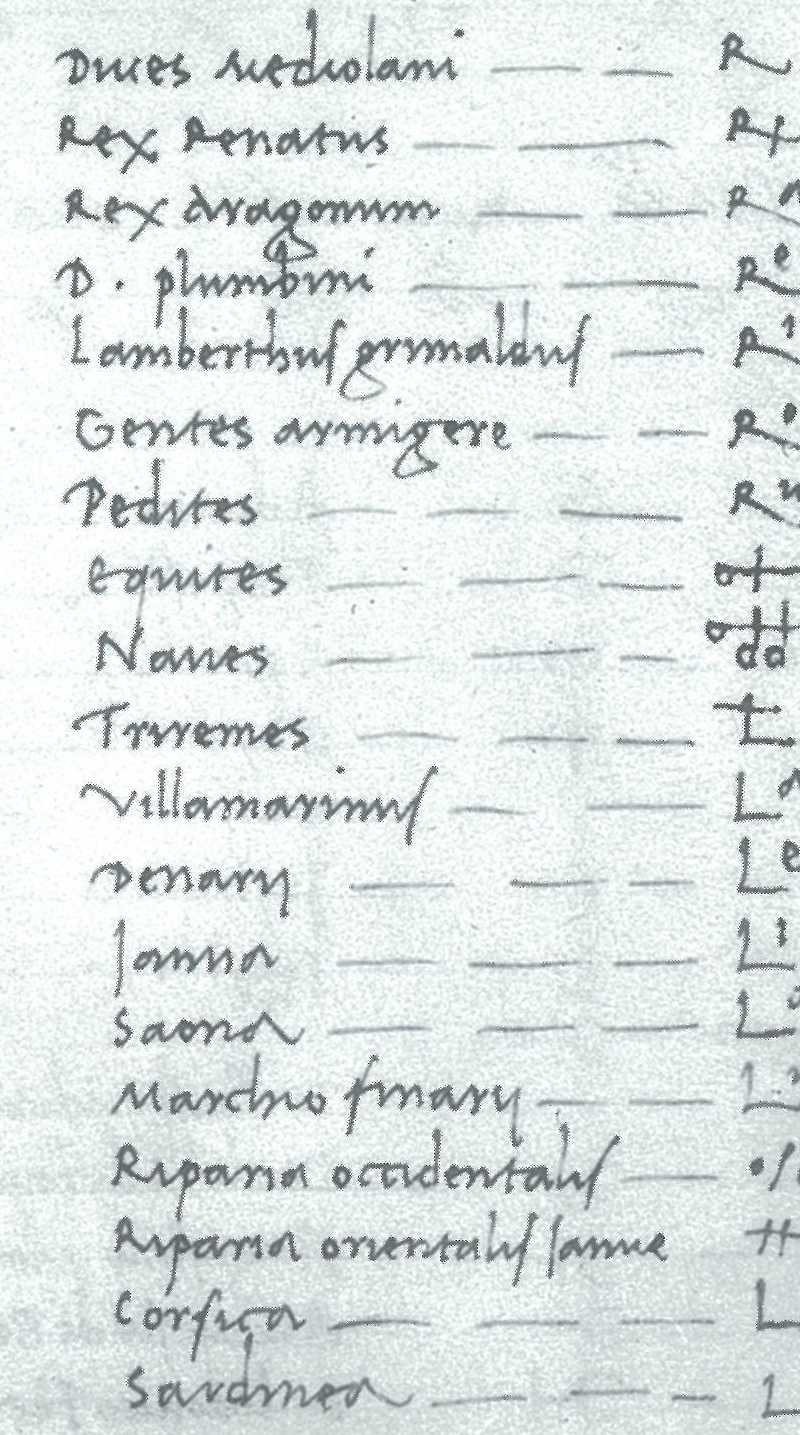 Duces Mediolani — — R
Rex Renatus — — R
Rex Aragonum — — R
D. plumbini — — R e
Lamberthus grimaldus — R i
Gentes armigere — — R o
Pedites — — — R u
equites — — —
Naues — — —
Triremes — — —
Villamarinus — — L
Denarij — — — L e
Janua — — — L i
Saona — — — L
Marchio finarij — — L
Riparia occidentalis —
Riparia orientalis Janue
Corsica — — — L
Sardinea — — — L